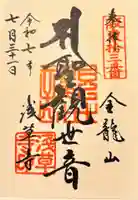 奉拝
坂東拾三番
金龍山
聖観世音
令和七年
七月三十一日
浅草寺